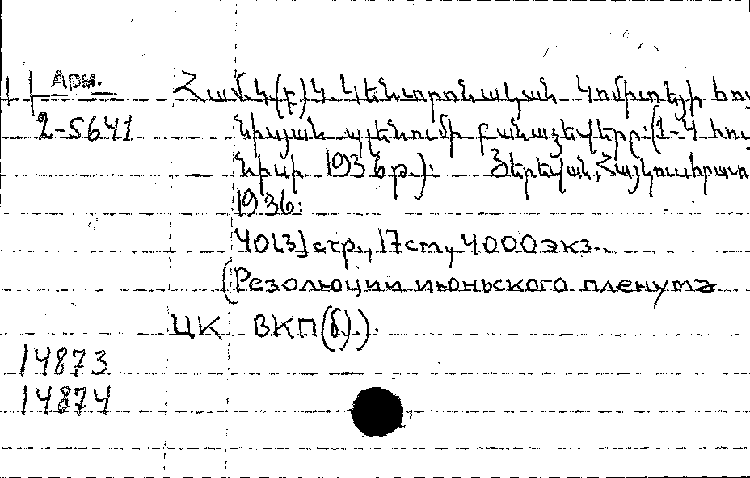 Арм.
2-5641
ՀամԿ(բ)Կ Կենտրոնական Կոմիտեյի հու
նիսյան պլենումի բանաձեվերը: (1-4 հու
նիսի 1936 թ.): Յերեվան, Հայկուսհրատ
1936:
40[3]стр., 17см, 4000экз.
(Резолюции июньского пленума
ЦК ВКП(б).).
14873
14874